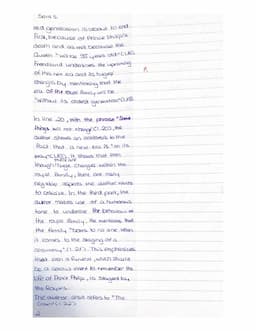 Seite 2
old generation is about to end.
First, because of Prince Philip's
death and as well because the
Queen "will be 95 years old" (l.18).
Freedland underlines the upcoming
of this new era and its huge
changes by mentioning that the
era of the royal family will be
"without its oldest generation" (l.19).
In line 20, with the phrase "Some
things will not change" (l.20), the
author shows an antithesis to the
fact that a new era is "on its
way" (l.18). It shows that even
though there are huge changes within the
royal family, there are many
negative aspects the author wants
to criticize. In the third part, the
author makes use of a humorous
tone to underline the behaviour of
the royal family. He mentions that
the family "bows to no one when
it comes to the staging of a
ceremony" (l.21). This emphasizes
that even a funeral, which should
be a serious event to remember the
life of Prince Philip, is staged by
the Royals.
The author also refers to "The
Crown" (l.22)